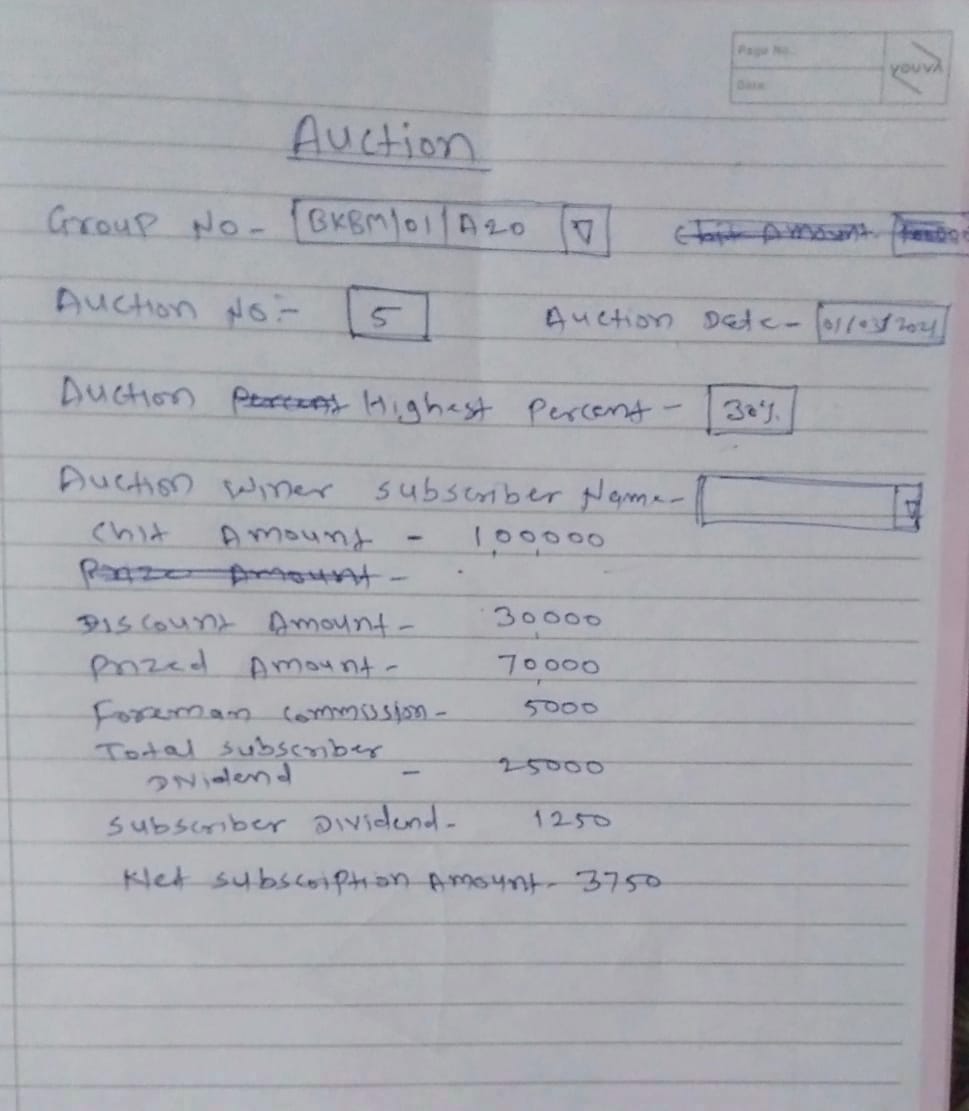 Page No.
Date
YOUVA
Auction
Group No - BKBM/01/A20
Auction No :- 5 Auction Date - 01/03/2021
Auction Highest Percent - 30%
Auction Winer subscriber Name -
Chit Amount - 1,00,000
Prize Amount -
Discount Amount - 30,000
Prized Amount - 70,000
Foreman Commission - 5000
Total Subscriber
Dividend - 25000
Subscriber Dividend - 1250
Net Subscription Amount - 3750